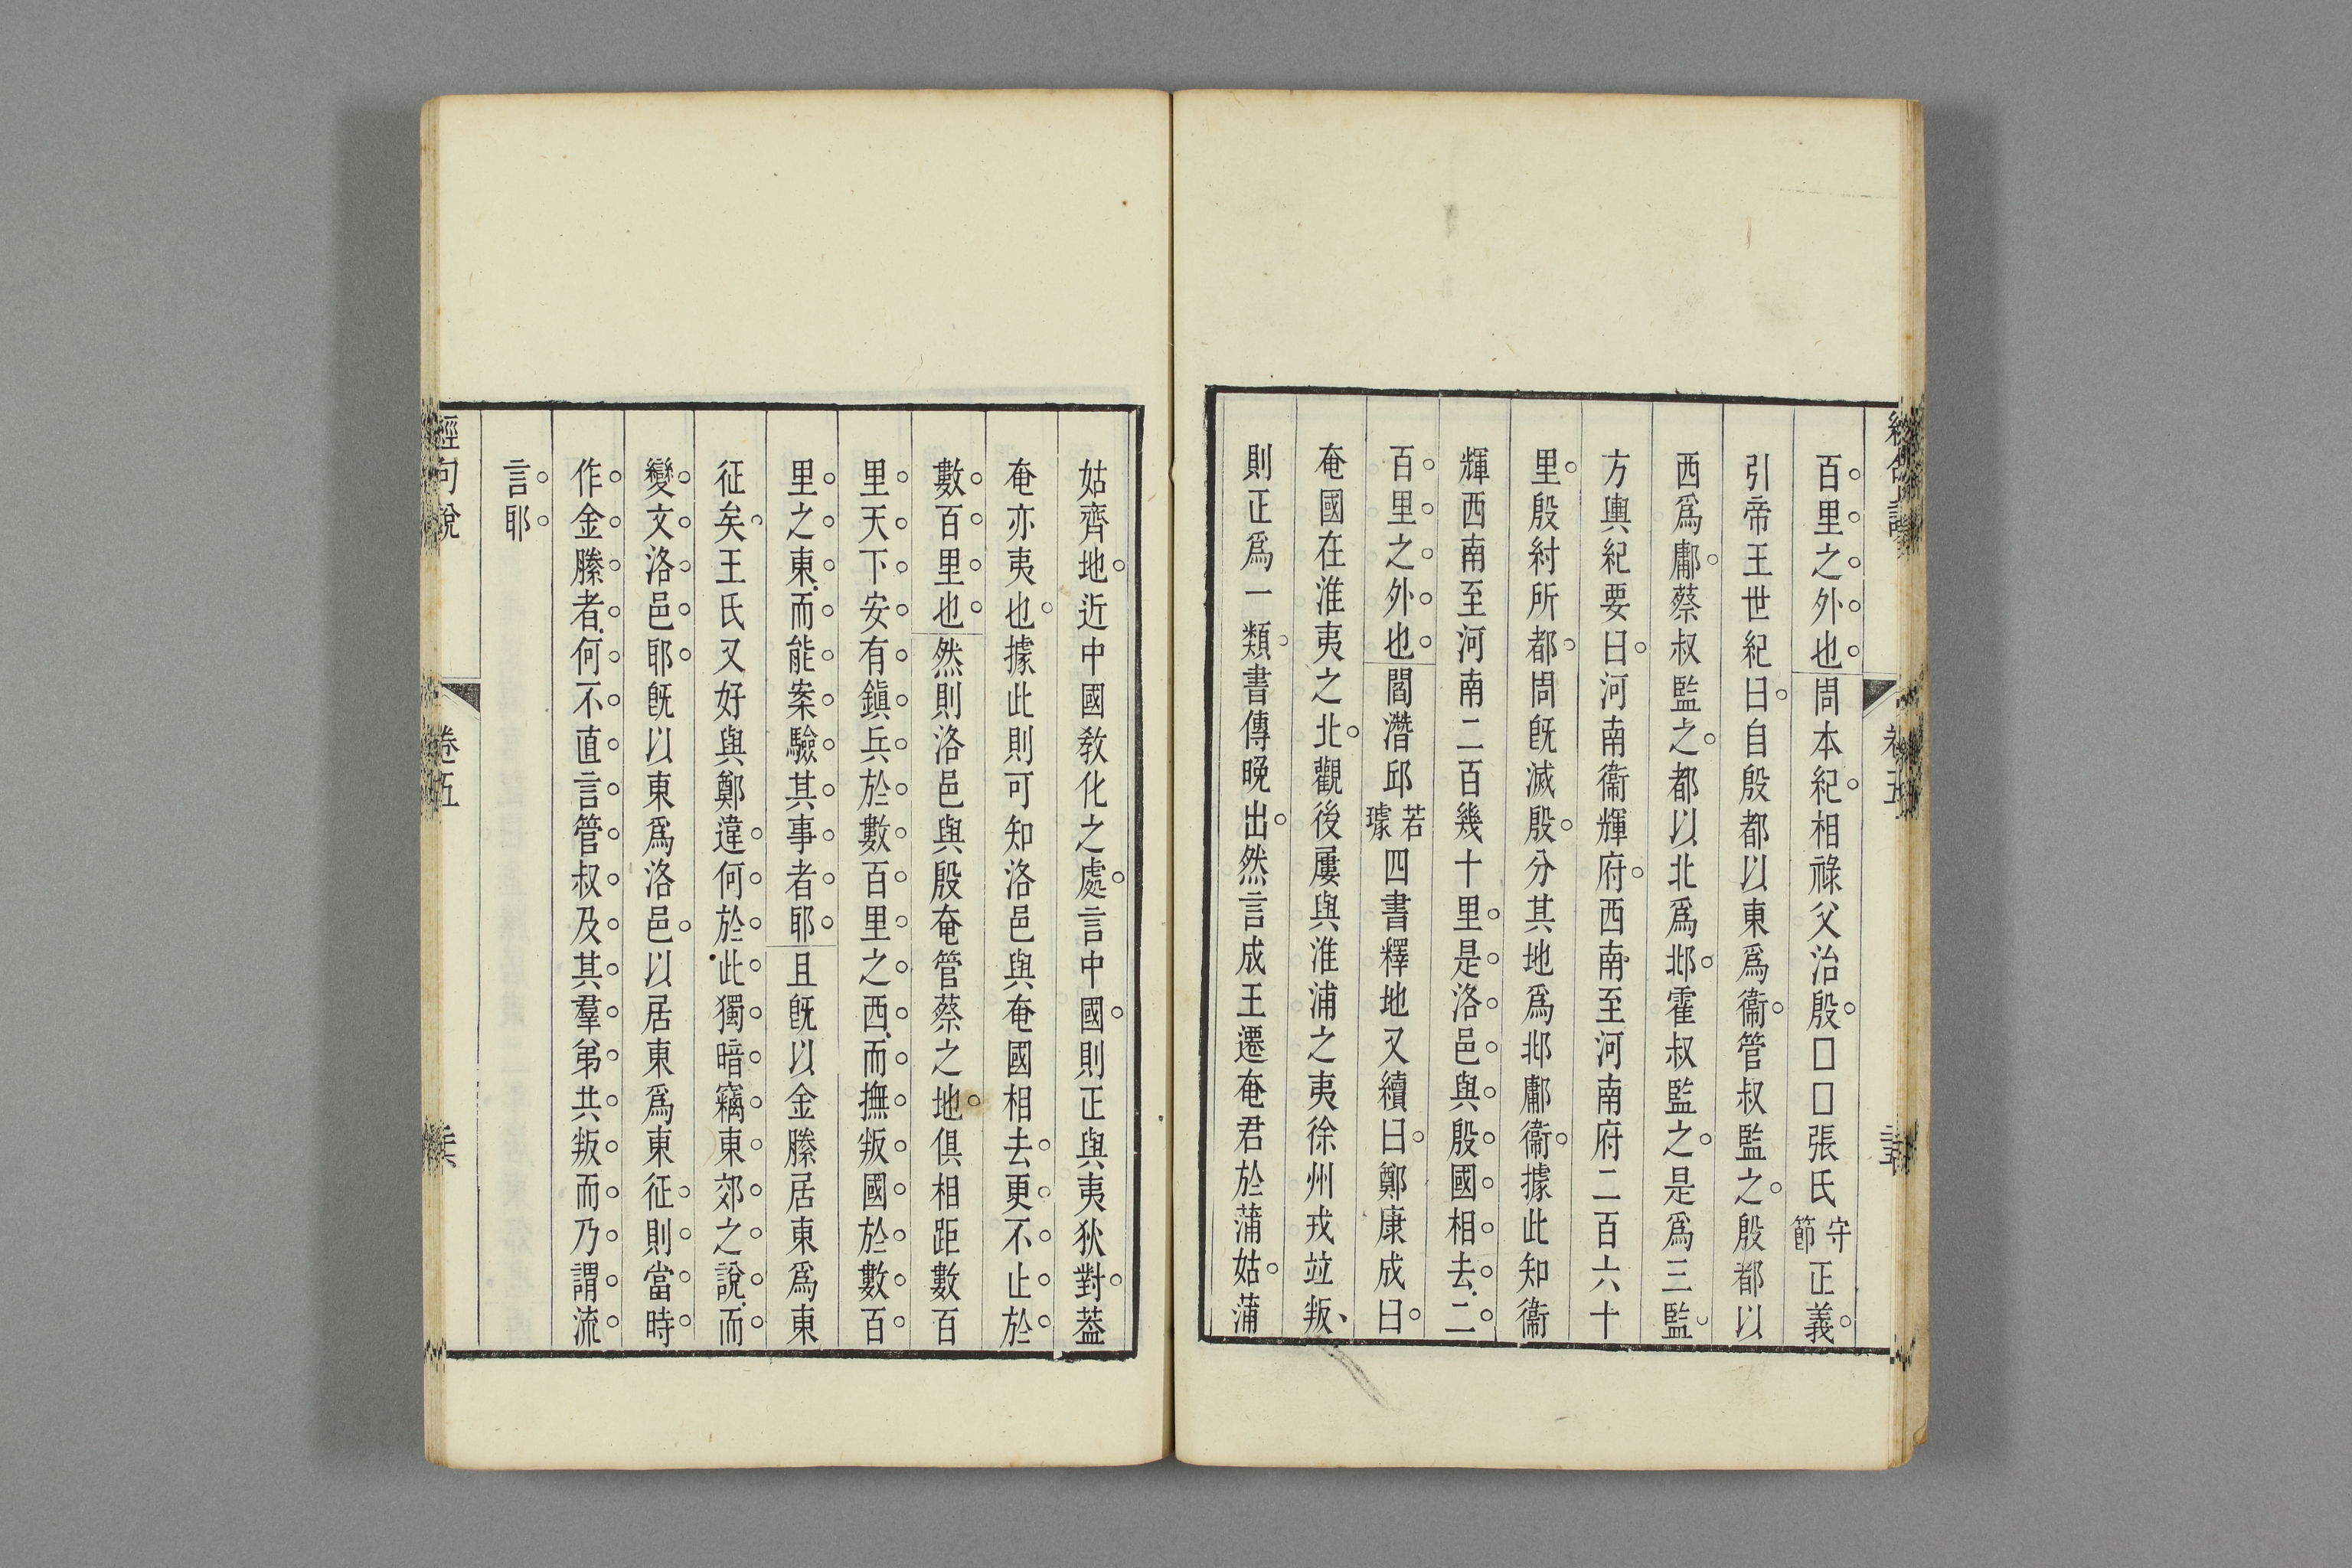 百里之外也周本紀相祿父治殷□□張氏守節正義
引帝王世紀曰自殷都以東爲衞管叔監之殷都以
西爲鄘蔡叔監之都以北爲邶霍叔監之是爲三監
方輿紀要曰河南衞輝府西南至河南府二百六十
里殷紂所都周旣滅殷分其地爲邶鄘衞據此知衞
輝西南至河南二百幾十里是洛邑與殷國相去二
百里之外也閻潛邱若璩四書釋地又續曰鄭康成曰
奄國在淮夷之北觀後屢與淮浦之夷徐州戎竝叛
則正爲一類書傳晚出然言成王遷奄君於蒲姑蒲
姑齊地近中國敎化之處言中國則正與夷狄對葢
奄亦夷也據此則可知洛邑與奄國相去更不止於
數百里也然則洛邑與殷奄管蔡之地俱相距數百
里天下安有鎭兵於數百里之西而撫叛國於數百
里之東而能案驗其事者耶且旣以金縢居東爲東
征矣王氏又好與鄭違何於此獨暗竊東郊之說而
變文洛邑耶旣以東爲洛邑以居東爲東征則當時
作金縢者何不直言管叔及其羣弟共叛而乃謂流
言耶
經句說
卷五